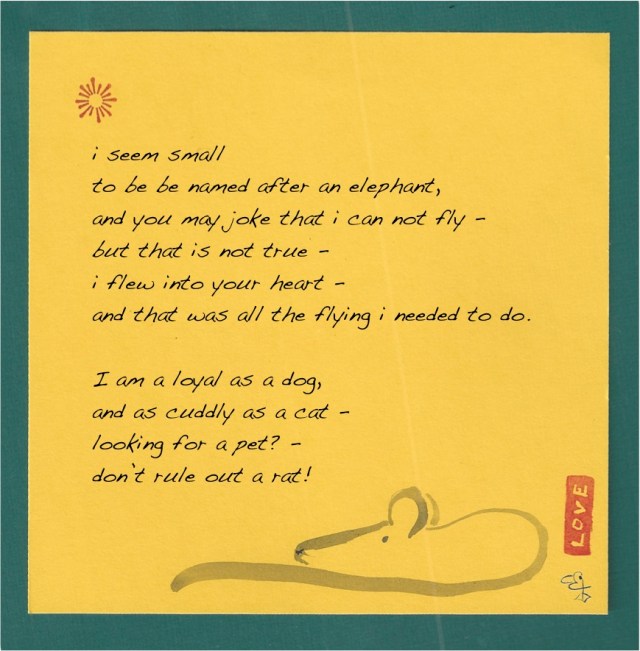 i seem small
to be be named after an elephant,
and you may joke that i can not fly -
but that is not true -
i flew into your heart -
and that was all the flying i needed to do.
I am a loyal as a dog,
and as cuddly as a cat -
looking for a pet? -
don't rule out a rat!
LOVE